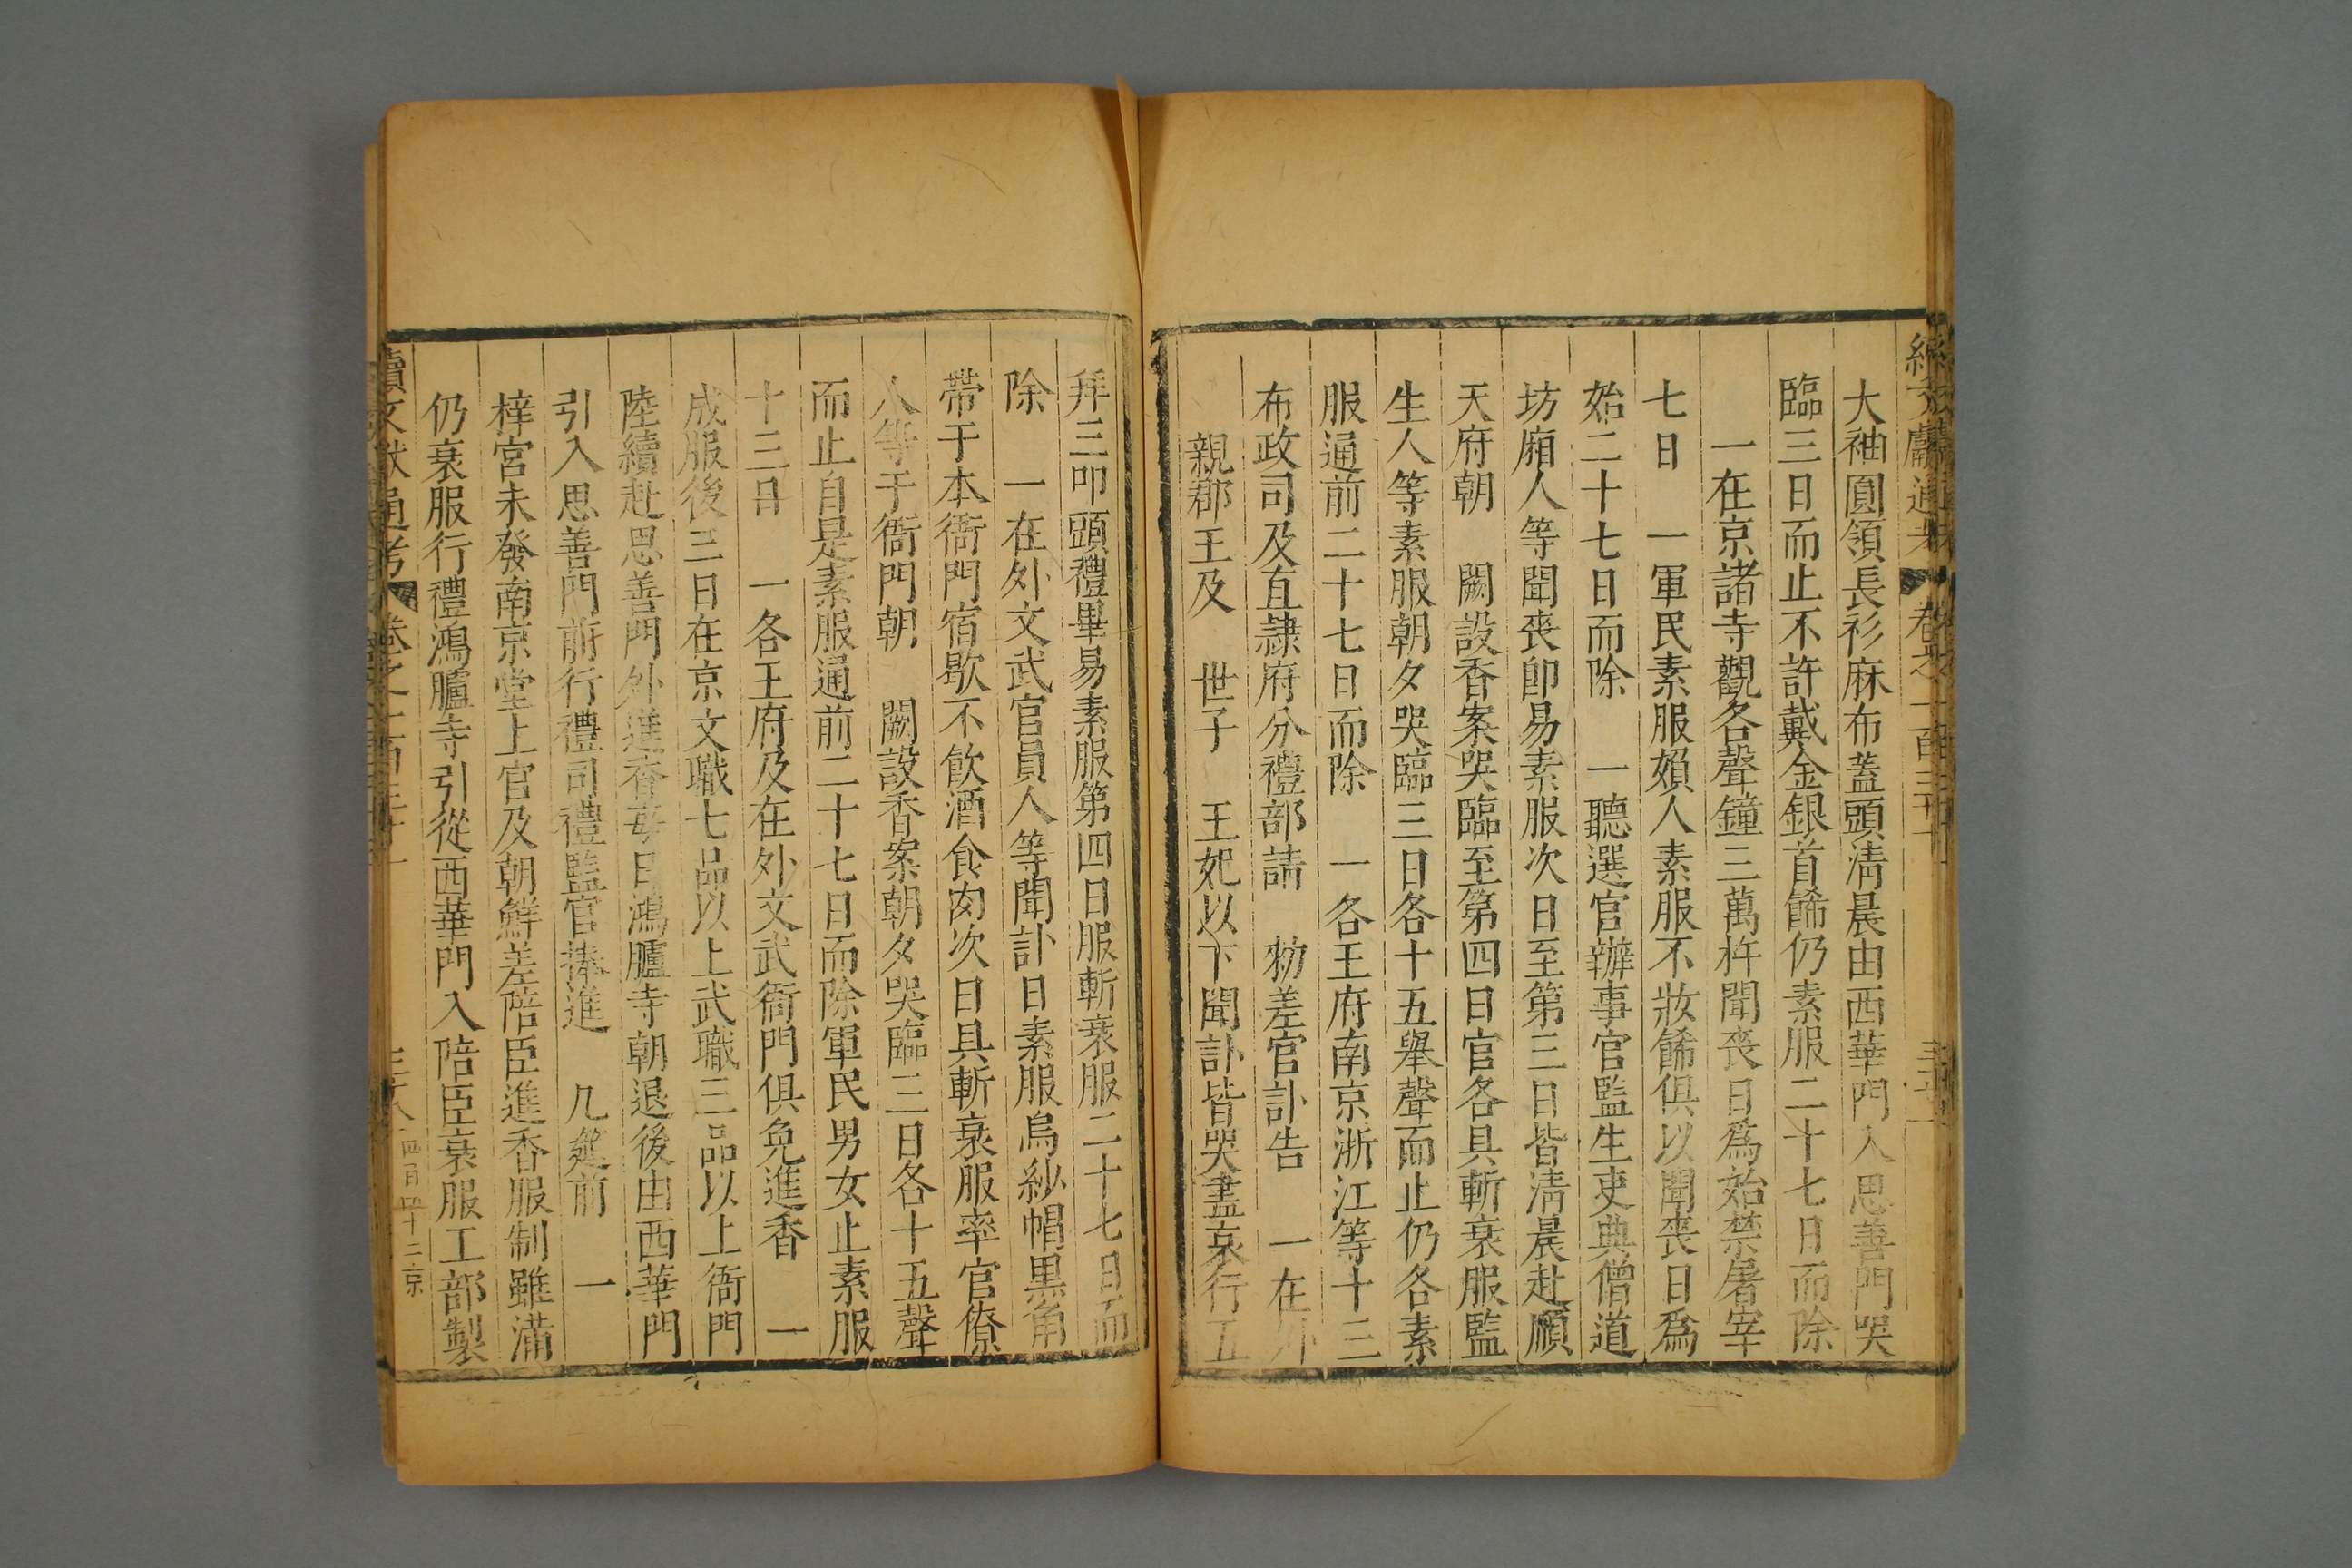 大袖圓領長衫麻布蓋頭清晨由西華門入思善門哭
臨三日而止不許戴金銀首餙仍素服二十七日而除
一在京諸寺觀各聲鐘三萬杵聞喪日爲始禁屠宰
七日　一軍民素服嬪人素服不妝餙俱以聞喪日爲
始二十七日而除　一聽選官辦事官監生吏典僧道
坊廂人等聞喪卽易素服次日至第三日皆清晨赴順
天府朝　闕設香案哭臨至第四日官各具斬衰服監
生人等素服朝夕哭臨三日各十五舉聲而止仍各素
服通前二十七日而除　一各王府南京浙江等十三
布政司及直隸府分禮部請　勑差官訃告　一在外
親郡王及　世子　王妃以下聞訃皆哭盡哀行五
拜三叩頭禮畢易素服第四日服斬衰服二十七日而
除　一在外文武官員人等聞訃日素服烏紗帽黑角
帶于本衙門宿歇不飲酒食肉次日具斬衰服率官僚
人等于衙門朝　闕設香案朝夕哭臨三日各十五聲
而止自是素服通前二十七日而除軍民男女止素服
十三日　一各王府及在外文武衙門俱免進香　一
成服後三日在京文職七品以上武職三品以上衙門
陸續赴思善門外進香每日鴻臚寺朝退後由西華門
引入思善門前行禮司禮監官捧進　几筵前　一
梓宮未發南京堂上官及朝鮮差陪臣進香服制雖滿
仍衰服行禮鴻臚寺引從西華門入陪臣衰服工部製
續文獻通考　卷之一百三十一　三十八　四百四十二京